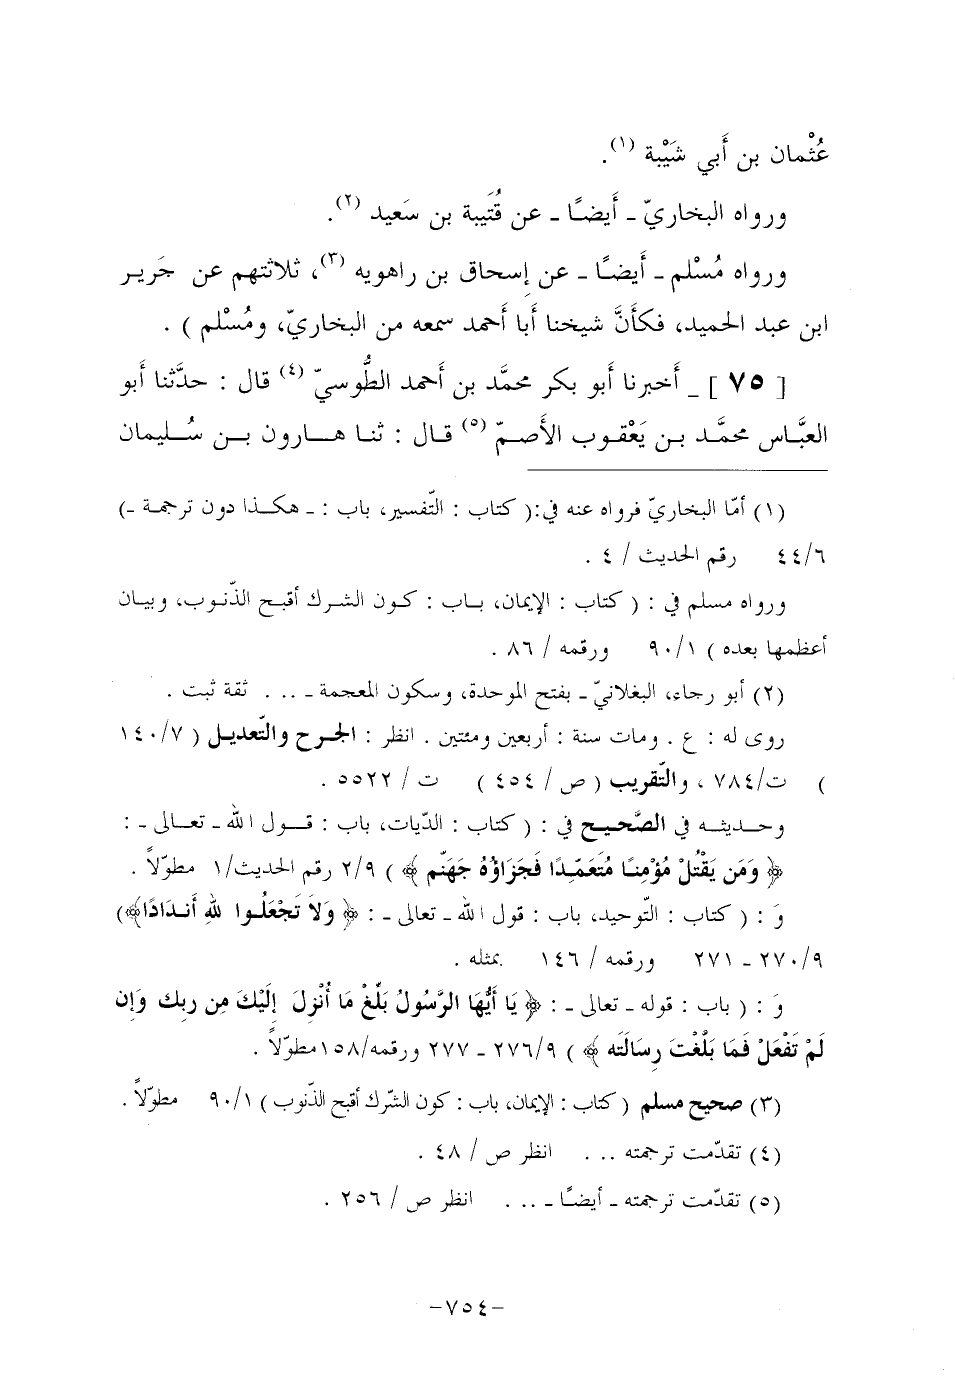 عُثْمان بن أَبي شَيْبة (١).
ورواه البخاريّ ـ أَيضًا ـ عن قُتَيبة بن سَعيد (٢).
ورواه مُسْلم ـ أَيضًا ـ عن إِسحاق بن راهويه (٣)، ثلاثتهم عن جَرير
ابن عبد الحميد، فكأَنَّ شيخنا أَبا أَحمد سمعه من البخاريّ، ومُسْلم ) .
[ ٧٥ ] ـ أَخبرنا أَبو بكر محمَّد بن أَحمد الطُّوسيّ (٤) قال : حدَّثنا أَبو
العبَّاس محمَّد بن يَعْقوب الأَصمّ (٥) قال : ثنا هارون بن سُليمان
(١) أمّا البخاريّ فرواه عنه في:( كتاب : التّفسير، باب : ـ هكذا دون ترجمة ـ)
٤٤/٦ رقم الحديث / ٤ .
ورواه مسلم في : ( كتاب : الإيمان، باب : كون الشرك أقبح الذّنوب، وبيان
أعظمها بعده ) ٩٠/١ ورقمه / ٨٦ .
(٢) أبو رجاء، البغلانيّ ـ بفتح الموحدة، وسكون المعجمة ـ ... . ثقة ثبت .
روى له : ع . ومات سنة : أربعين ومئتين . انظر : الجرح والتّعديل ( ١٤٠/٧
) ت/٧٨٤ ، والتّقريب ( ص / ٤٥٤ ) ت / ٥٥٢٢ .
وحديثه في الصَّحيح في : ( كتاب : الدّيات، باب : قول الله ـ تعالى ـ :
﴿ وَمَن يَقْتُلْ مُؤْمِنًا مُتَعَمِّدًا فَجَزَاؤُهُ جَهَنّم ﴾ ) ٢/٩ رقم الحديث/ ١ مطوّلاً .
وَ : ( كتاب : التّوحيد، باب : قول الله ـ تعالى ـ : ﴿ وَلاَ تَجْعَلُوا للهِ أَندَادًا﴾)
٢٧٠/٩ ـ ٢٧١ ورقمه / ١٤٦ بمثله .
وَ : ( باب : قوله ـ تعالى ـ : ﴿ يَا أَيُّهَا الرَّسُولُ بَلِّغْ مَا أُنْزِلَ إِلَيْكَ مِن ربِك وَإِن
لَمْ تَفْعَلْ فَمَا بَلَّغْتَ رِسَالَتَه ﴾ ) ٢٧٦/٩ ـ ٢٧٧ ورقمه/١٥٨مطوّلاً .
(٣) صحيح مسلم ( كتاب : الإيمان، باب : كون الشّرك أقبح الذّنوب ) ٩٠/١ مطوّلاً .
(٤) تقدّمت ترجمته ... . انظر ص / ٤٨ .
(٥) تقدّمت ترجمته ـ أيضًا ـ ... . انظر ص / ٢٥٦ .
-٧٥٤-